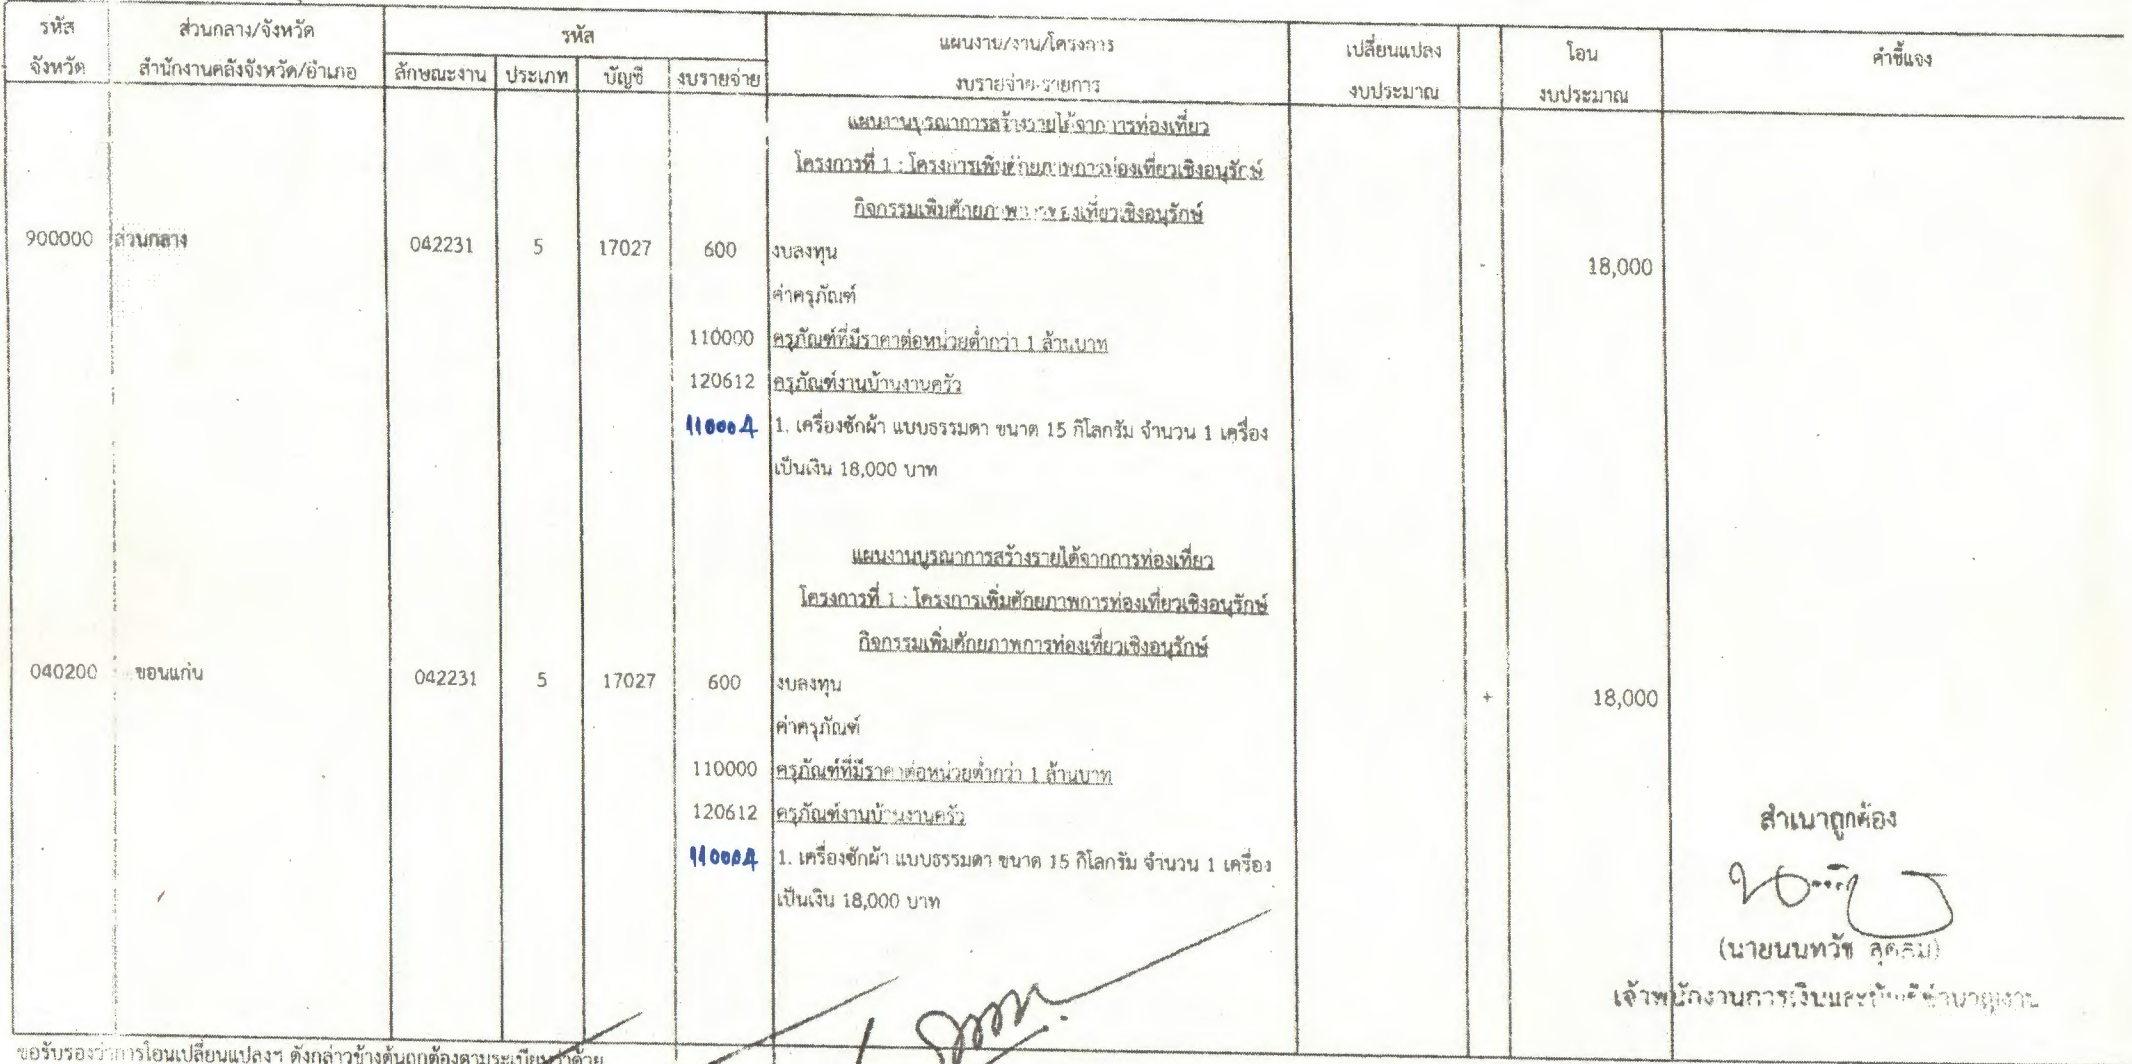 รหัส ส่วนกลาง/จังหวัด รหัส แผนงาน/งาน/โครงการ เปลี่ยนแปลง โอน คำชี้แจง
จังหวัด สำนักงานคลังจังหวัด/อำเภอ ลักษณะงาน ประเภท บัญชี งบรายจ่าย งบรายจ่าย-รายการ งบประมาณ งบประมาณ
แผนงานบูรณาการสร้างรายได้จากการท่องเที่ยว
โครงการที่ 1 : โครงการเพิ่มศักยภาพการท่องเที่ยวเชิงอนุรักษ์
กิจกรรมเพิ่มศักยภาพการท่องเที่ยวเชิงอนุรักษ์
900000 ส่วนกลาง 042231 5 17027 600 งบลงทุน - 18,000
ค่าครุภัณฑ์
110000 ครุภัณฑ์ที่มีราคาต่อหน่วยต่ำกว่า 1 ล้านบาท
120612 ครุภัณฑ์งานบ้านงานครัว
110004 1. เครื่องซักผ้า แบบธรรมดา ขนาด 15 กิโลกรัม จำนวน 1 เครื่อง
เป็นเงิน 18,000 บาท
แผนงานบูรณาการสร้างรายได้จากการท่องเที่ยว
โครงการที่ 1 : โครงการเพิ่มศักยภาพการท่องเที่ยวเชิงอนุรักษ์
กิจกรรมเพิ่มศักยภาพการท่องเที่ยวเชิงอนุรักษ์
040200 ขอนแก่น 042231 5 17027 600 งบลงทุน + 18,000
ค่าครุภัณฑ์
110000 ครุภัณฑ์ที่มีราคาต่อหน่วยต่ำกว่า 1 ล้านบาท
120612 ครุภัณฑ์งานบ้านงานครัว
110004 1. เครื่องซักผ้า แบบธรรมดา ขนาด 15 กิโลกรัม จำนวน 1 เครื่อง
เป็นเงิน 18,000 บาท
สำเนาถูกต้อง
(นายนนทวัช
เจ้าพนักงานการเงินและบัญชีชำนาญงาน
ขอรับรองว่าการโอนเปลี่ยนแปลงฯ ดังกล่าวข้างต้นถูกต้องตามระเบียบว่าด้วย